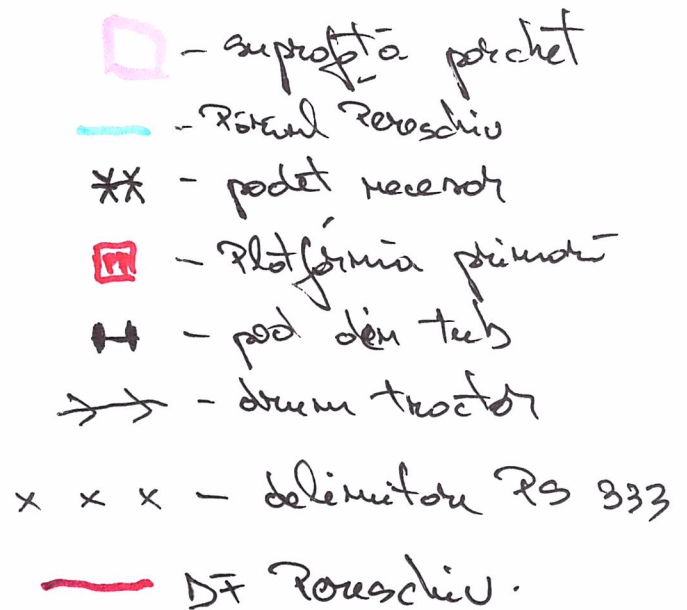 - suprafță parchet
- Pârâul Paraschiv
- podet necesar
PP - Platformă primară
- pod din tub
- drum tractor
x x x - delimitare PS 333
DF Paraschiv.